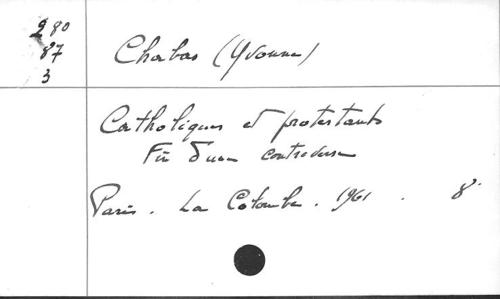 280
87
3
Chabas (Yvonne)
Catholiques et protestants
Fin d'une controverse
Paris. La Colombe. 1961. 8°